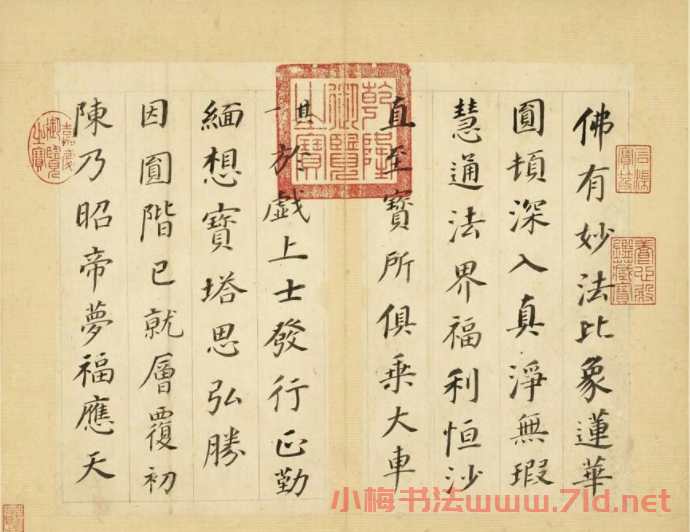 佛有妙法比象蓮華
圓頓深入真淨無瑕
慧通法界福利恒沙
直至寶所俱乗大車
其一於戲上士發行正勤
緬想寶塔思弘勝
因圓階已就層覆初
陳乃昭帝夢福應天
乾隆御覽之寶
嘉慶御覽之寶
石渠寶笈
養心殿鑑藏寶
小梅书法www.7ld.net